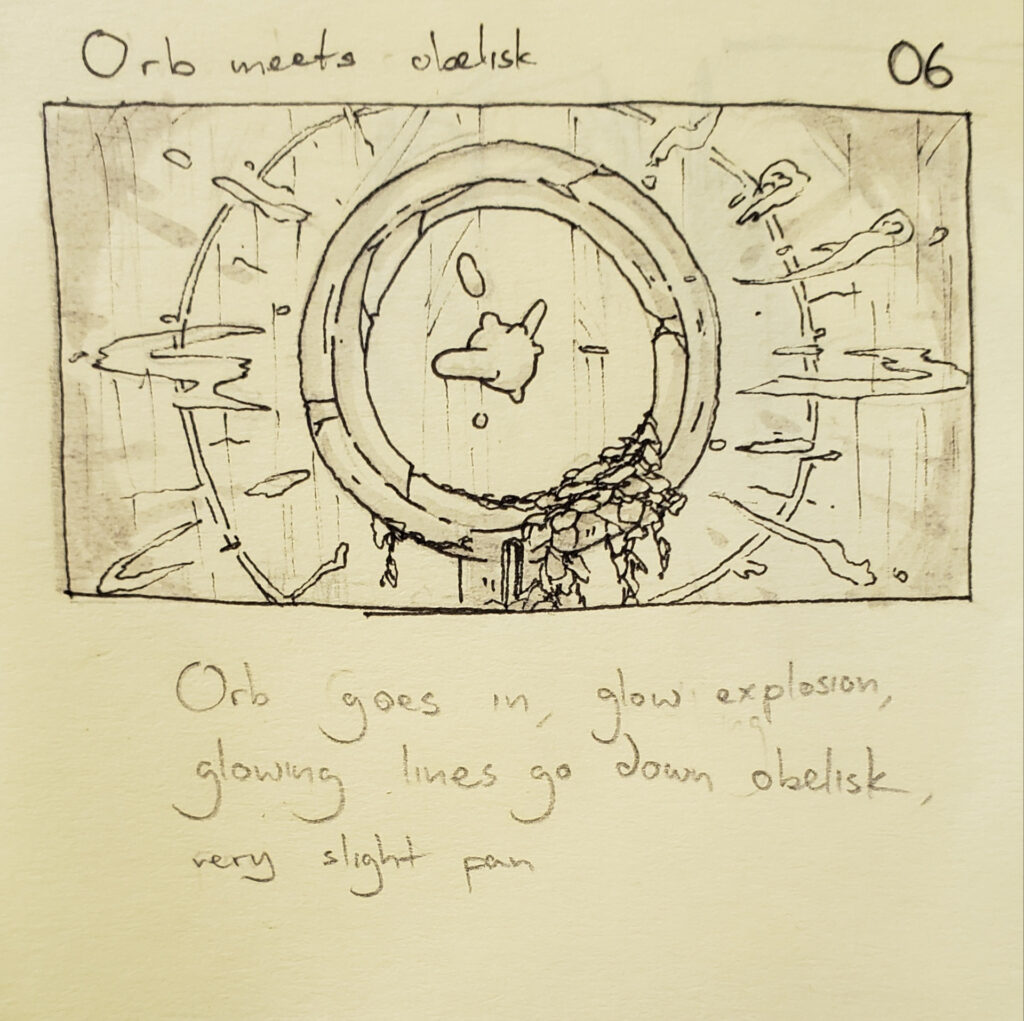 Orb meets obelisk
06
Orb goes in, glow explosion,
glowing lines go down obelisk,
very slight pan